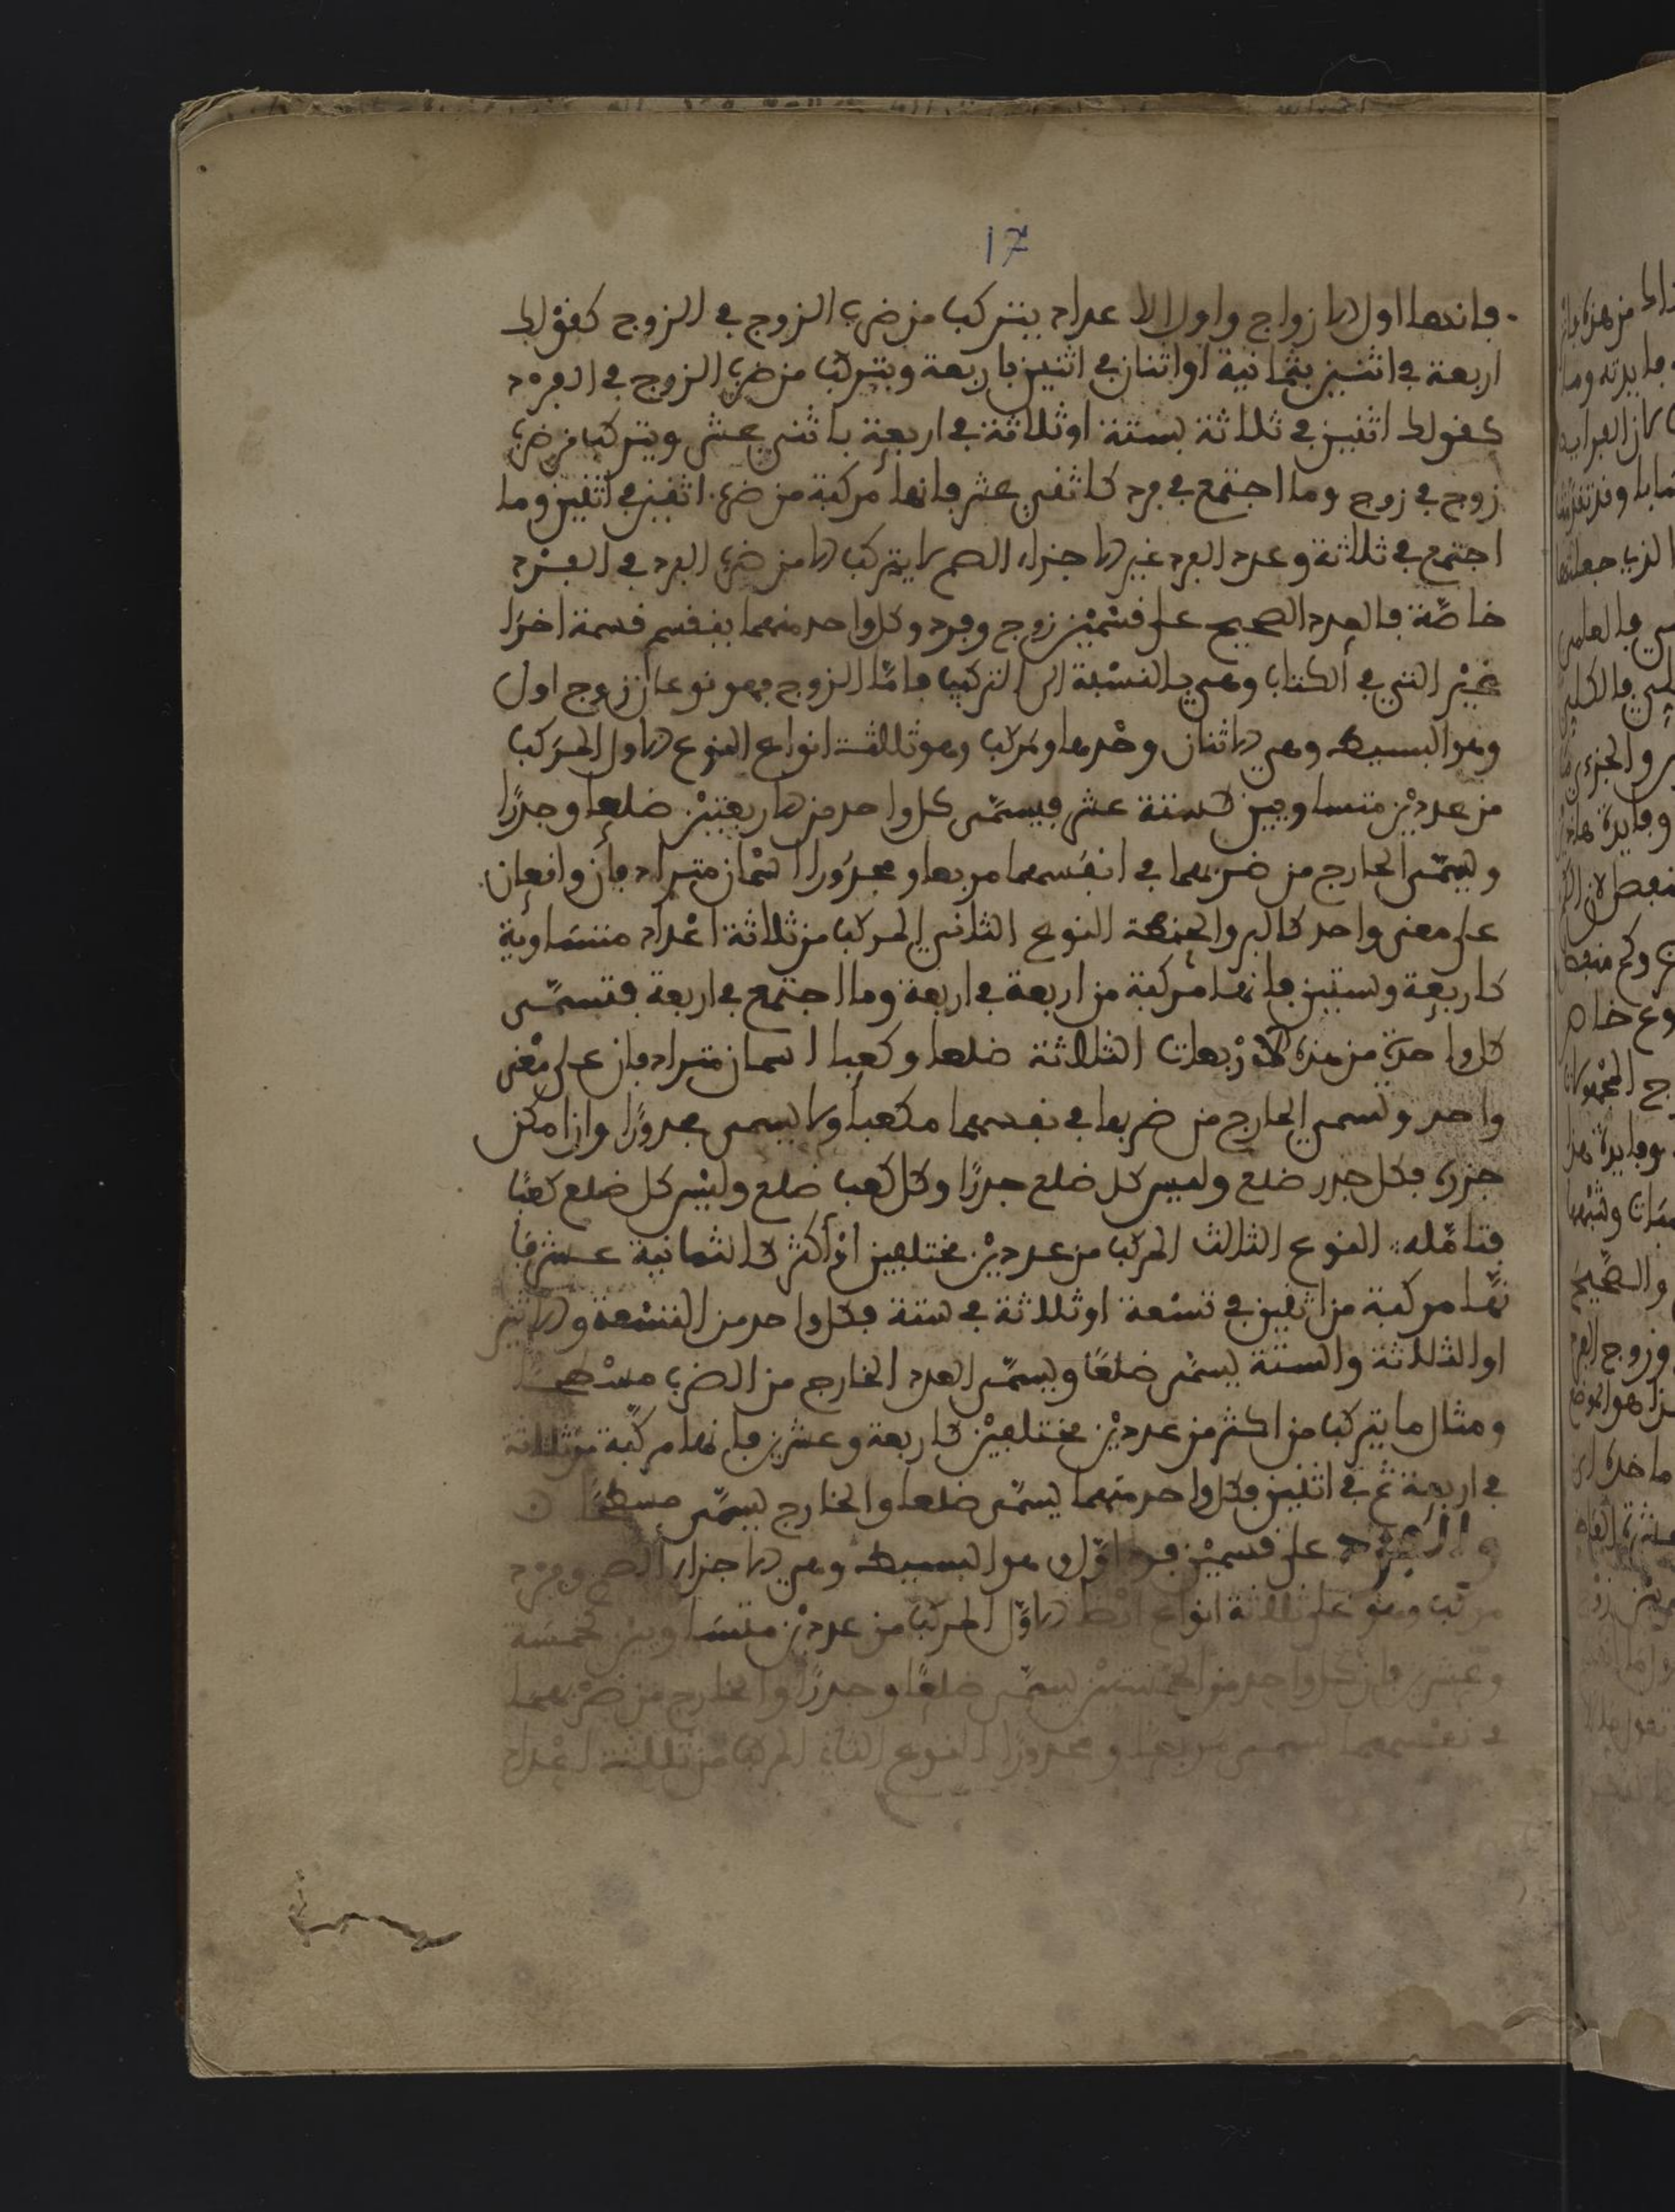 17
فانها اول الازواج واول الاعداد يتركب من ضرب الزوج في الزوج كقولك
اربعة في اثنين بثمانية او اثنان في اثنين باربعة ويتركب من ضرب الزوج في الفرد
كقولك اثنين في ثلاثة بستة او ثلاثة في اربعة باثني عشر ويتركب من ضرب
زوج في زوج وما اجتمع في فرد كاثني عشر فانها مركبة من ضرب اثنين في اثنين وما
اجتمع في ثلاثة وعدد الفرد غير الاجزاء الصم لا يتركب الا من ضرب الفرد في الفرد
خاصّة فالعدد الصحيح على قسمين زوج وفرد وكل واحد منهما ينقسم قسمة اخرا
غير التي في الكتاب وهي بالنسبة الى التركيب فامّا الزوج فهو نوعان زوج اول
وهو البسيط وهي الاثنان وحدها ومركب وهو ثلاثة انواع النوع الاول المركب
من عددين متساويين كستة عشر فيسمّى كل واحد من الاربعتين ضلعا وجدرًا
ويسمّى الخارج من ضربهما في انفسهما مربعا ومجدورا اسمان مترادفان واقعان
على معنى واحد كالبر والحنطة النوع الثاني المركب من ثلاثة اعداد متساوية
كاربعة وستين فانها مركبة من اربعة في اربعة وما اجتمع في اربعة فتسمّى
كل واحدة من هذه الاربعات الثلاثة ضلعا وكعبا اسمان مترادفان على معنى
واحد ويسمى الخارج من ضربها في نفسها مكعبا ولا يسمى مجدورًا وان امكن
جدره فكل جدر ضلع وليس كل ضلع جدرًا وكل كعب ضلع وليس كل ضلع كعبًا
فتامّله النوع الثالث المركب من عددين مختلفين او اكثر كالثمانية عشر فا
نّها مركبة من اثنين في تسعة او ثلاثة في ستة فكل واحد من التسعة والاثنين
او الثلاثة والستة يسمّى ضلعًا ويسمّى العدد الخارج من الضرب مسطحًا
ومثال ما يتركب من اكثر من عددين مختلفين كاربعة وعشرين فانها مركّبة من ثلاثة
في اربعة ثم في اثنين فكل واحد منهما يسمّى ضلعا والخارج يسمّى مسطحًا
والفرد على قسمين فرد اوّل وهو البسيط وهي الاجزاء الصم وفرد
مركب وهو على ثلاثة انواع ايضا الاوّل المركب من عددين متساويين كخمسة
وعشرين فان كل واحد من الخمستين يسمّى ضلعًا وجدرًا والخارج من ضربهما
في نفسهما يسمى مربعا ومجدورًا النوع الثاني المركب من ثلاثة اعداد